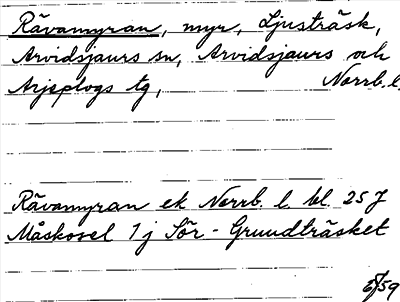 Rävamyran, myr, Ljusträsk,
Arvidsjaurs sn, Arvidsjaurs och
Arjeplogs tg, Norrb. l.
Rävamyran ek Norrb. l. bl. 25 J
Måskosel 1 j Sör-Grundträsket
5/59